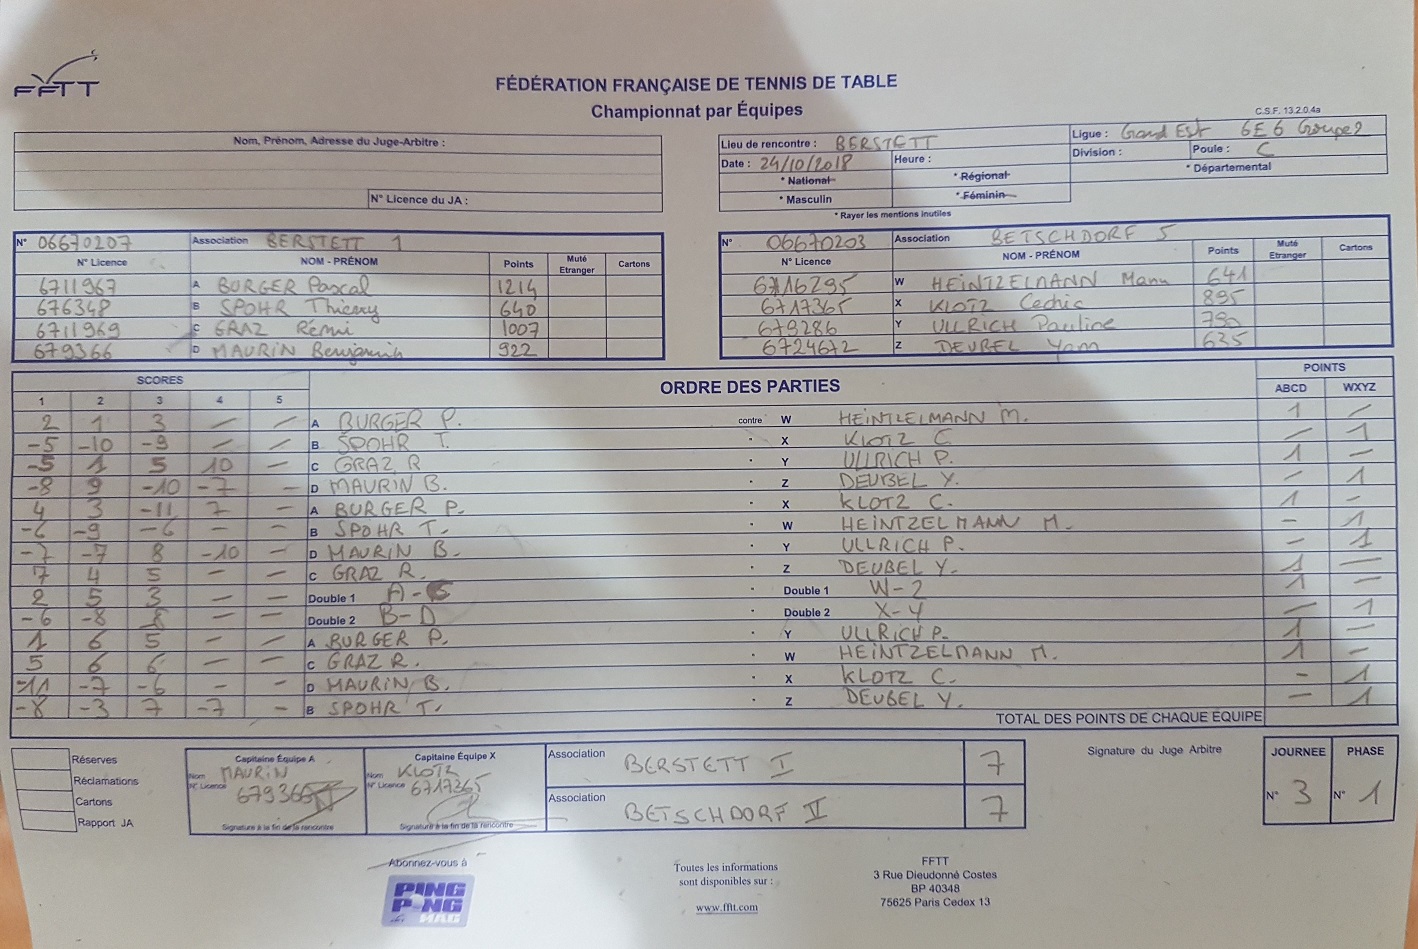 FFTT
FÉDÉRATION FRANÇAISE DE TENNIS DE TABLE
Championnat par Équipes
C.S.F. 13.2.0.4a
Nom, Prénom, Adresse du Juge-Arbitre :
N° Licence du JA :
Lieu de rencontre : BERSTETT Ligue : Grand Est GE6 Groupe 2
Date : 24/10/2018 Heure : Division : Poule : C
* National * Régional * Départemental
* Masculin * Féminin
* Rayer les mentions inutiles
N° 06670207 Association BERSTETT 1
N° Licence NOM - PRÉNOM Points Muté Etranger Cartons
6711967 A BURGER Pascal 1214
676348 B SPOHR Thierry 640
6711969 C GRAZ Rémi 1007
679366 D MAURIN Benjamin 922
N° 06670203 Association BETSCHDORF 5
N° Licence NOM - PRÉNOM Points Muté Etranger Cartons
6716295 W HEINTZELMANN Manu 641
6717365 X KLOTZ Cedric 895
679286 Y ULLRICH Pauline 790
6724672 Z DEUBEL Yann 635
SCORES ORDRE DES PARTIES POINTS
1 2 3 4 5 ABCD WXYZ
2 1 3 — — A BURGER P. contre W HEINTZELMANN M. 1 —
-5 -10 -9 — — B SPOHR T. " X KLOTZ C — 1
-5 1 5 10 — C GRAZ R " Y ULLRICH P. 1 —
-8 9 -10 -7 — D MAURIN B. " Z DEUBEL Y. — 1
4 3 -11 7 — A BURGER P. " X KLOTZ C. 1 —
-6 -9 -6 — — B SPOHR T. " W HEINTZELMANN M. — 1
-7 -7 8 -10 — D MAURIN B. " Y ULLRICH P. — 1
7 4 5 — — C GRAZ R. " Z DEUBEL Y. 1 —
2 5 3 — — Double 1 A-C " Double 1 W-Z 1 —
-6 -8 — — Double 2 B-D " Double 2 X-Y — 1
1 6 5 — — A BURGER P. " Y ULLRICH P. 1 —
5 6 6 — — C GRAZ R. " W HEINTZELMANN M. 1 —
-11 -7 -6 — — D MAURIN B. " X KLOTZ C. — 1
-8 -3 7 -7 — B SPOHR T. " Z DEUBEL Y. — 1
TOTAL DES POINTS DE CHAQUE ÉQUIPE
Réserves
Réclamations
Cartons
Rapport JA
Capitaine Équipe A
Nom MAURIN
N° Licence 679366
Signature à la fin de la rencontre
Capitaine Équipe X
Nom KLOTZ
N° Licence 6717365
Signature à la fin de la rencontre
Association BERSTETT I 7
Association BETSCHDORF V 7
Signature du Juge Arbitre
JOURNEE PHASE
N° 3 N° 1
Abonnez-vous à
PING PONG MAG
Toutes les informations
sont disponibles sur :
www.fftt.com
FFTT
3 Rue Dieudonné Costes
BP 40348
75625 Paris Cedex 13